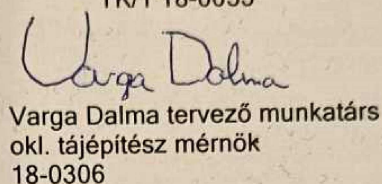 TK/1 18-0053
Varga Dalma
Varga Dalma tervező munkatárs
okl. tájépítész mérnök
18-0306